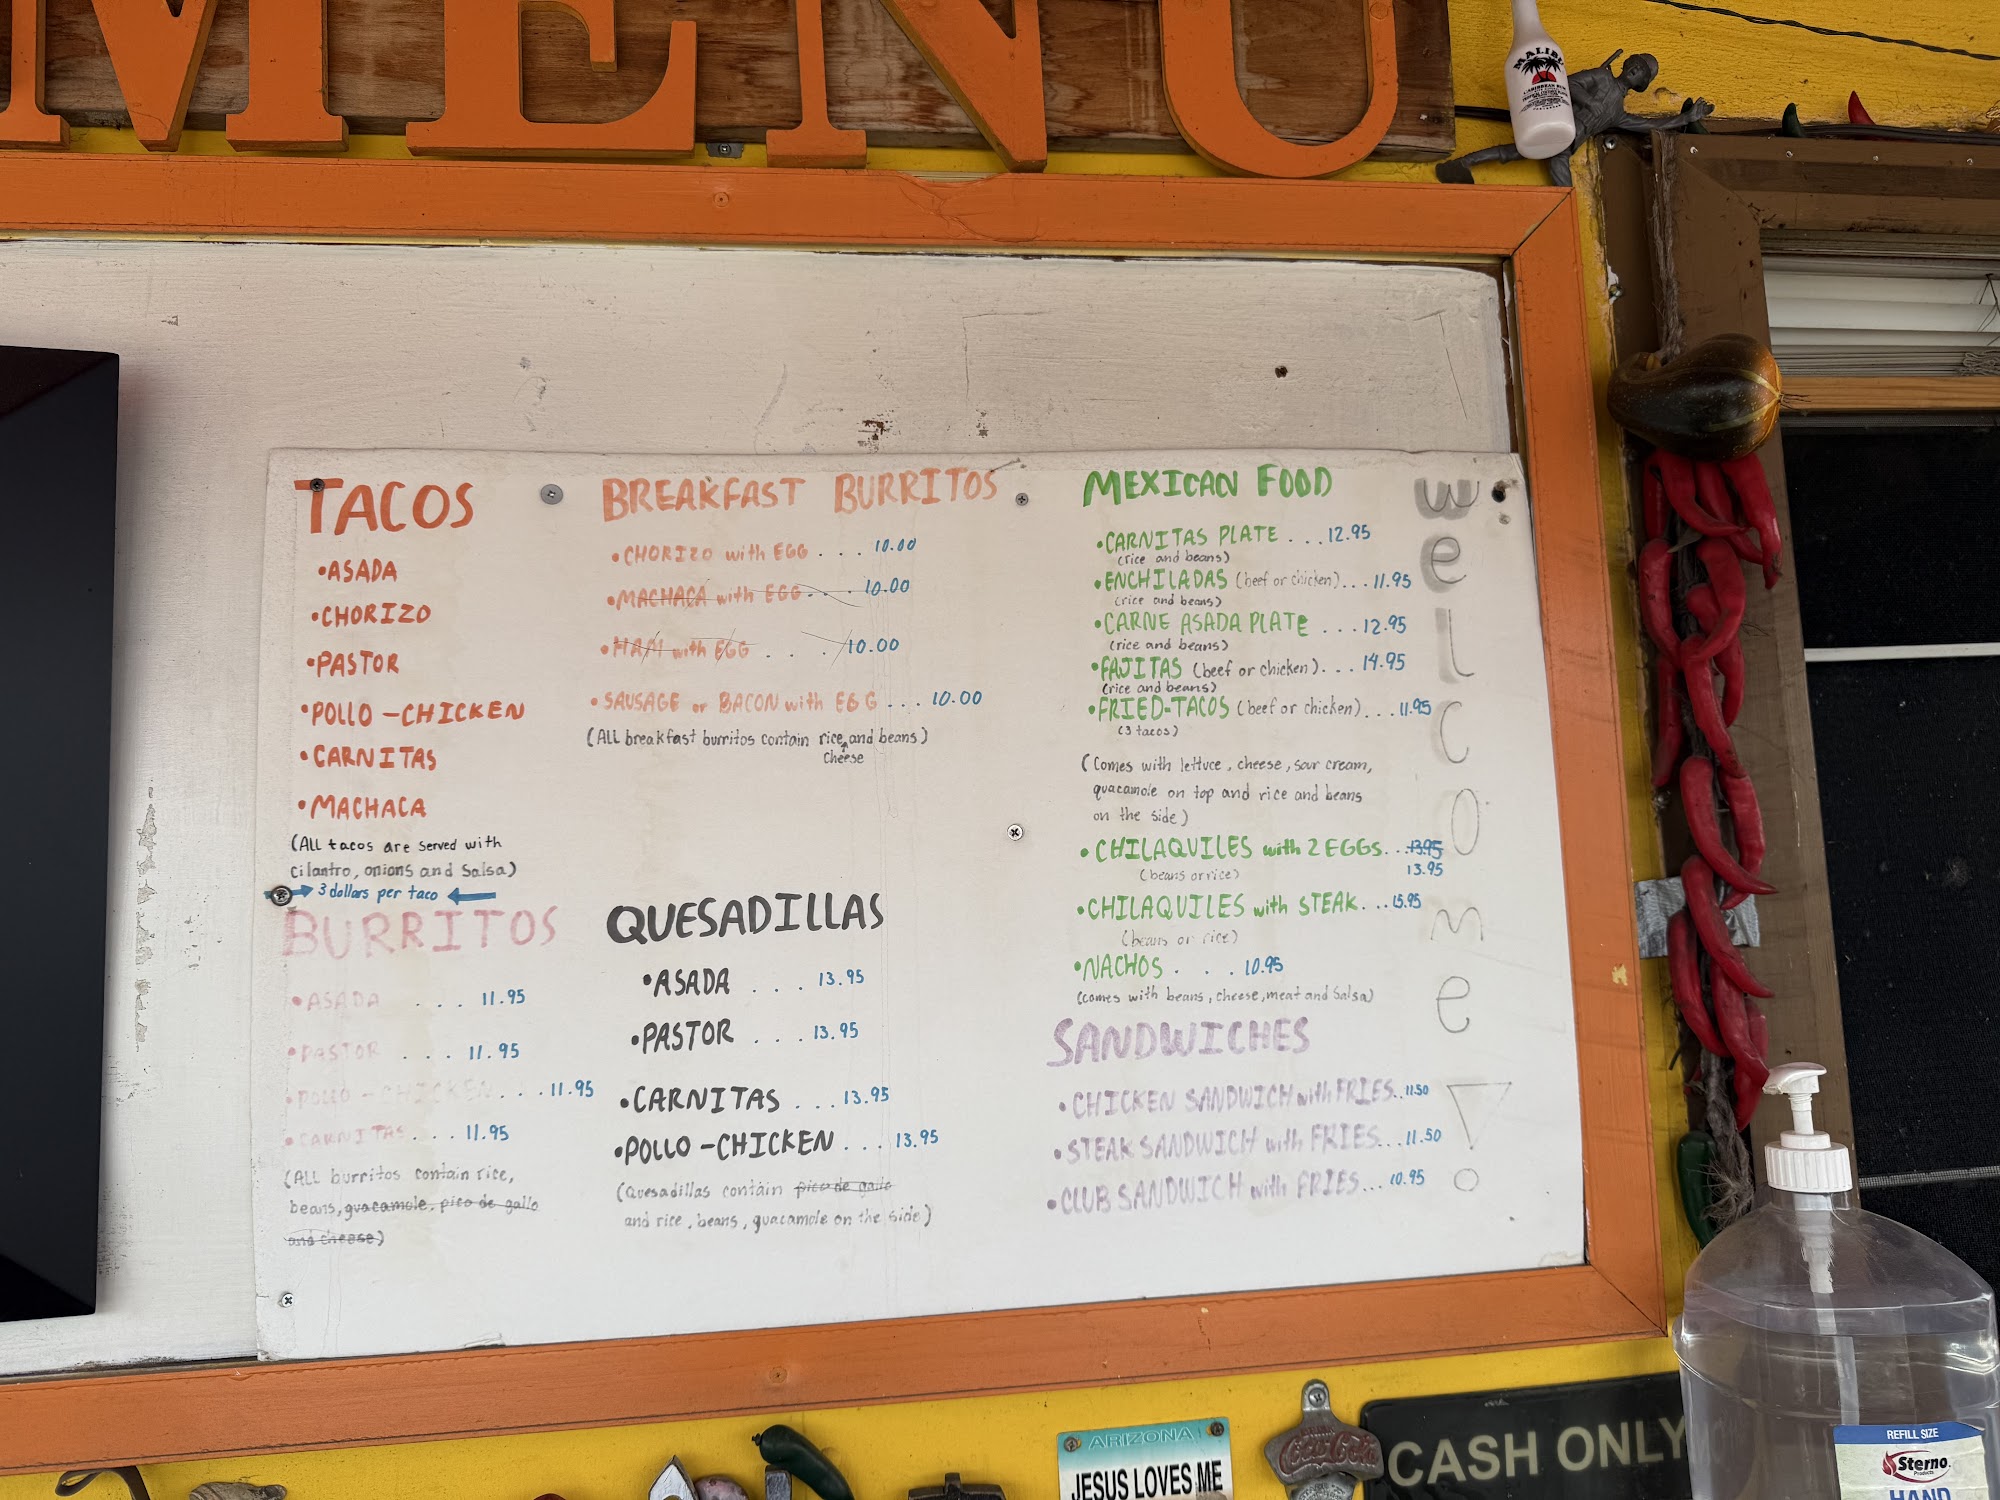 MENU
TACOS
•ASADA
•CHORIZO
•PASTOR
•POLLO-CHICKEN
•CARNITAS
•MACHACA
(ALL tacos are served with
cilantro, onions and salsa)
3 dollars per taco
BURRITOS
•ASADA ... 11.95
•PASTOR ... 11.95
•POLLO-CHICKEN ... 11.95
•CARNITAS ... 11.95
(ALL burritos contain rice,
beans, guacamole, pico de gallo
and cheese)
BREAKFAST BURRITOS
•CHORIZO with EGG ... 10.00
•MACHACA with EGG ... 10.00
•HAM with EGG ... 10.00
•SAUSAGE or BACON with EGG ... 10.00
(ALL breakfast burritos contain rice and beans)
cheese
QUESADILLAS
•ASADA ... 13.95
•PASTOR ... 13.95
•CARNITAS ... 13.95
•POLLO-CHICKEN ... 13.95
(Quesadillas contain pico de gallo
and rice, beans, guacamole on the side)
MEXICAN FOOD
•CARNITAS PLATE ... 12.95
(rice and beans)
•ENCHILADAS (beef or chicken)... 11.95
(rice and beans)
•CARNE ASADA PLATE ... 12.95
(rice and beans)
•FAJITAS (beef or chicken)... 14.95
(rice and beans)
•FRIED-TACOS (beef or chicken)... 11.95
(3 tacos)
(Comes with lettuce, cheese, sour cream,
guacamole on top and rice and beans
on the side)
•CHILAQUILES with 2 EGGS... 13.95
13.95
(beans or rice)
•CHILAQUILES with STEAK... 15.95
(beans or rice)
•NACHOS ... 10.95
(comes with beans, cheese, meat and salsa)
SANDWICHES
•CHICKEN SANDWICH with FRIES.. 11.50
•STEAK SANDWICH with FRIES... 11.50
•CLUB SANDWICH with FRIES... 10.95
welcome
MALIBU
ARIZONA
JESUS LOVES ME
Coca-Cola
CASH ONLY
REFILL SIZE
Sterno
Products
HAND